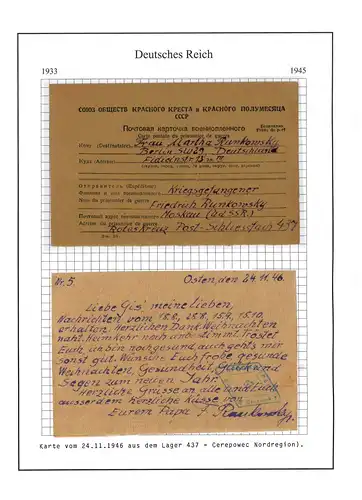 Deutsches Reich
1933
1945
СОЮЗ ОБЩЕСТВ КРАСНОГО КРЕСТА и КРАСНОГО ПОЛУМЕСЯЦА
СССР
Почтовая карточка военнопленного
Carte postale du prisonnier de guerre
Кому (Destinataire) Frau Martha Runkowsky
Berlin SW29, Deutschland
Куда (Adresse) Fidicinstr.
Отправитель (Expéditeur)
Фамилия и имя военнопленного Kriegsgefangener
Nom du prisonnier de guerre Friedrich Runkowsky
Почтовый адрес военнопленного Moskau (UdSSR)
Adresse du prisonnier de guerre
Rotes Kreuz Post-Schliessfach 437
Nr. 5. Osten, den 24.11.46.
Liebe Gis' meine lieben,
Nachrichten vom 18.8., 28.8., 15.9., 15.10.
erhalten. Herzlichen Dank. Weihnachten
naht. Heimkehr noch unbestimmt. Tröstet
Euch, ich bin noch gesund auch geht's mir
sonst gut. Wünsche Euch frohe, gesunde
Weihnachten, Gesundheit, Glück und
Segen zum neuen Jahr.
Herzliche Grüsse an alle und Euch
ausserdem herzliche Küsse von
Eurem Papa F. Runkowsky
Karte vom 24.11.1946 aus dem Lager 437 - Cerepowec Nordregion).